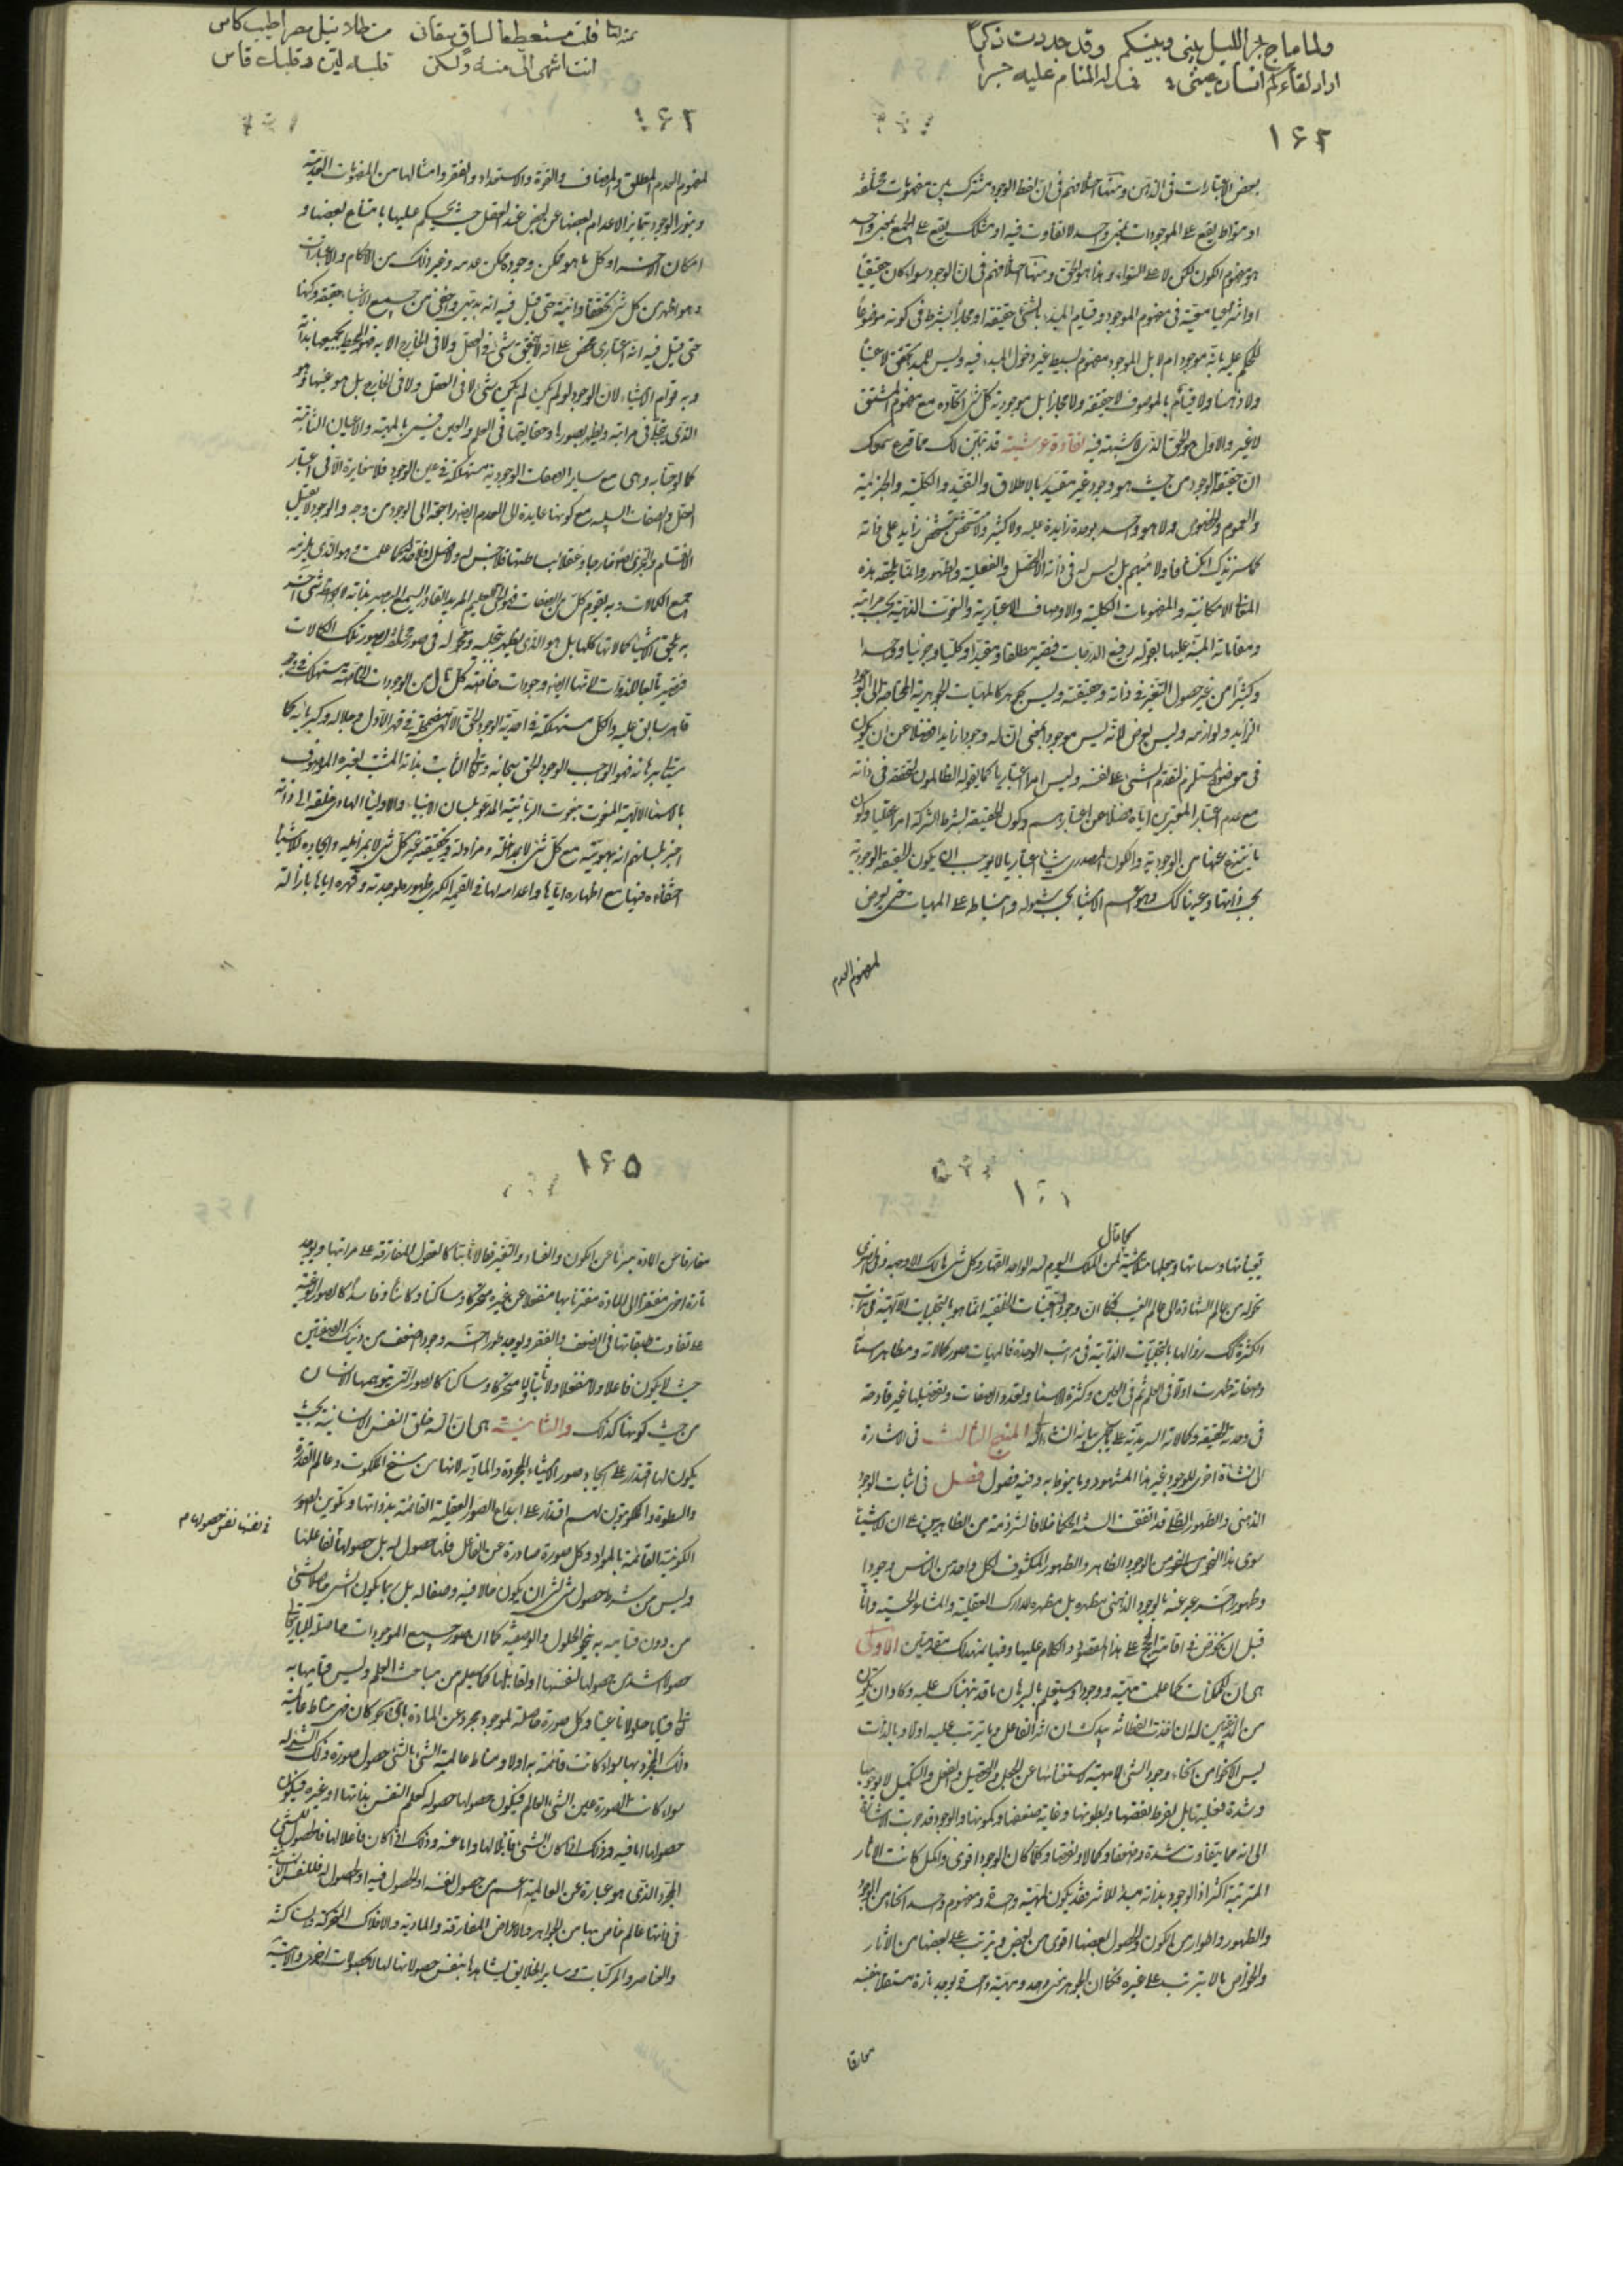 ولما ماج بحر الليل بيني وبينكم وقد جددت ذكرا
اراد لقاءكم انسان عيني فمد له المنام عليه جسرا
١٦٢
بعض الاعتبارات في الذهن ومنها اختلافهم في ان لفظ الوجود مشترك بين مفهومات مختلفة
او متواط يقع على الموجودات بمعنى واحد لا تفاوت فيه او مشكك يقع على الجميع بمعنى واحد
هو مفهوم الكون لكن لا على السواء وهذا هو الحق ومنها اختلافهم في ان الوجود سواء كان حقيقيا
للحكم عليه بانه موجود ام لا بل الموجود مفهوم بسيط غير دخول المبدء فيه وليس للمبدء تحقق لا عينا
ولا ذهنا ولا قيام بالموصوف لا حقيقة ولا مجازا بل موجودية كل شئ اتحاده مع مفهوم المشتق
لا غير والاول هو الحق الذي لا شبهة فيه نقاوة عرشية قد تبين لك مما قرع سمعك
ان حقيقة الوجود من حيث هو وجود غير مقيد بالاطلاق والتقييد والكلية والجزئية
والعموم والخصوص ولا هو واحد بوحدة زايدة عليه ولا كثير ولا متشخص بتشخص زايد على ذاته
كما سنزيدك انكشافا ولا مبهم بل ليس له في ذاته الا التحصل والفعلية والظهور وانما تلحقه هذه
المعاني الامكانية والمفهومات الكلية والاوصاف الاعتبارية والنعوت الذهنية بحسب مراتبه
ومقاماته المنبه عليها بقوله رفيع الدرجات فيصير مطلقا ومقيدا وكليا وجزئيا وواحدا
وكثيرا من غير حصول التغير في ذاته وحقيقته وليس بجوهر كالمهيات الجوهرية المحتاجة الى الوجود
الزايد ولوازمه وليس بعرض لانه ليس موجودا بمعنى ان له وجودا زايدا فضلا عن ان يكون
في موضوع المستلزم لتقدم الشئ على نفسه وليس امرا اعتباريا كما يقوله الظالمون لتحققه في ذاته
مع عدم اعتبار المعتبرين اياه فضلا عن اعتباراتهم وكون الحقيقة بشرط الشركة امرا عقليا وكون
ما ينتزع عنها من الموجودية والكون المصدري شيئا اعتباريا لا يوجب ان يكون الحقيقة الوجودية
بحسب ذاتها وعينها كذلك وهو اعم الاشياء بحسب شموله وانبساطه على المهيات حتى يعرض
لمفهوم العدم
فلت مستعطفا لساق سقاني من طلا نيل مصر اطيب كاس
انت اشهى الي منه ولكن قلبه لين وقلبك قاس
١٦٣
لمفهوم العدم المطلق والمضاف والقوة والاستعداد والفقر وامثالها من المفهومات العدمية
وبنور الوجود يتمايز الاعدام بعضها عن بعض عند العقل حيث يحكم عليها بامتناع بعضها و
امكان الاخر اذ كل ما هو ممكن وجوده ممكن عدمه وغير ذلك من الاحكام والاعتبارات
وهو اظهر من كل شئ تحققا وانية حتى قيل فيه انه بديهي واخفى من جميع الاشياء حقيقة وكنها
حتى قيل فيه انه اعتباري محض على انه لا يتحقق شئ في العقل ولا في الخارج الا به فهو المحيط بجميعها بذاته
وبه قوام الاشياء لان الوجود لو لم يكن لم يكن شئ لا في العقل ولا في الخارج بل هو عينها وهو
الذي يتجلى في مراتبه ويظهر بصورها وحقايقها في العلم والعين فيسمى بالمهية والاعيان الثابتة
كما لوحنا به وهي مع ساير الصفات الوجودية مستهلكة في عين الوجود فلا مغايرة الا في اعتبار
العقل والصفات السلبية مع كونها عايدة الى العدم ايضا راجعة الى الوجود من وجه والوجود لا يقبل
جميع الكمالات وبه يقوم كل من الصفات فهو الحي العليم المريد القادر السميع البصير بذاته لا بواسطة شئ اخر
به يلحق الاشياء كمالاتها كلها بل هو الذي يظهر بتجليه وتحوله في صور مختلفة بصور تلك الكمالات
فيصير تابعا للذوات لانها ايضا وجودات خاصة وكل تال من الوجودات الخاصة مستهلك في وجود
قاهر سابق عليه والكل مستهلكة في احدية الوجود الحق الالهي مضمحلة في قهر الاول وجلاله وكبريائه كما
سيأتيك برهانه فهو الواجب الوجود الحق سبحانه وتعالى الثابت بذاته المثبت لغيره الموصوف
بالاسماء الالهية المنعوت بنعوت الربانية المدعو بلسان الانبياء والاولياء الهادي خلقه الى ذاته
اخبر بلسانهم انه بهويته مع كل شئ لا بمداخلة ومزاولة وبحقيقته غير كل شئ لا بمزايلة وايجاده للاشياء
اختفاؤه فيها مع اظهاره اياها واعدامه لها في القيمة الكبرى ظهوره بوحدته وقهره اياها بازالة
١٦٤
كما قال
تعيناتها وسماتها وجعلها متلاشية لمن الملك اليوم لله الواحد القهار وكل شئ هالك الا وجهه وفي الصغرى
تحوله من عالم الشهادة الى عالم الغيب فكما ان وجود التعينات الخلقية انما هو بالتجليات الالهية في مراتب
الكثرة كذلك زوالها بالتجليات الذاتية في مراتب الوحدة فالمهيات صور كمالاته ومظاهر اسمائه
وصفاته ظهرت اولا في العلم ثم في العين وكثرة الاسماء وتعدد الصفات وتفصيلها غير قادحة
في وحدته الحقيقية وكمالاته السرمدية كما سيجئ بيانه ان شاء الله المنهج الثالث في الاشارة
الى نشأة اخرى للوجود غير هذا المشهود وما ينوط به وفيه فصول فصل في اثبات الوجود
الذهني والظهور الظلي قد اتفقت السنة الحكماء خلافا لشرذمة من الظاهريين على ان للاشياء
سوى هذا النحو من الوجود الظاهر والظهور المكشوف لكل واحد من الناس وجودا
وظهورا اخر عبر عنه بالوجود الذهني مظهره بل مظهره المدارك العقلية والمشاعر الحسية وانا
قبل ان نخوض في اقامة الحجج على هذا المقصود والكلام عليها وفيها نمهد لك مقدمتين الاولى
هي ان للممكنات كما علمت مهية ووجودا وستعلم بالبرهان ما قد نبهناك عليه وكاد ان تكون
من المذعنين له ان اخذت الفطانة بيدك ان اثر الفاعل وما يترتب عليه اولا وبالذات
ليس الا نحوا من انحاء وجود الشئ لا مهيته لاستغنائها عن الجعل والتحصيل والفعل والتكميل لا لوجوبها
وشدة فعليتها بل لفرط نقصها وبطونها وغاية ضعفها وكمونها والوجود قد مرت الاشارة
الى انه مما يتفاوت شدة وضعفا وكمالا ونقصا وكلما كان الوجود اقوى واكمل كانت الاثار
المترتبة اكثر اذ الوجود بذاته مبدء للاثر فقد يكون لمهية واحدة ومفهوم واحد انحاء من الوجود
والظهور واطوار من الكون والحصول بعضها اقوى من بعض ويترتب على بعضها من الاثار
والخواص ما لا يترتب على غيره فكما ان الجوهر معنى واحد ومهية واحدة يوجد تارة مستقلا بنفسه
مفارقا
١٦٥
مفارقا عن المادة متبرئا عن الكون والفساد والتغير فعالا ثابتا كالعقول المفارقة على مراتبها ويوجد
تارة اخرى مفتقرا الى المادة مقترنا بها منفعلا عن غيره متحركا وساكنا وكائنا وفاسدا كالصور النوعية
على تفاوت طبقاتها في الضعف والفقر ويوجد طورا اخر وجودا اضعف من ذينك الصنفين
حيث لا يكون فاعلا ولا منفعلا ولا ثابتا ولا متحركا وساكنا كالصور التي يتوهمها الانسان
من حيث كونها كذلك والثانية هي ان الله خلق النفس الانسانية بحيث
يكون لها اقتدار على ايجاد صور الاشياء المجردة والمادية لانها من سنخ الملكوت وعالم القدرة
والسطوة والملكوتيون لهم اقتدار على ابداع الصور العقلية القائمة بذواتها وتكوين الصور
الكونية القائمة بالمواد وكل صورة صادرة عن الفاعل فلها حصول له بل حصولها
في نفسها نفس حصولها م
وليس من شرط حصول شئ لشئ ان يكون حالا فيه وصفا له بل ربما يكون الشئ حاصلا لشئ
من دون قيامه به بنحو الحلول والوصفية كما ان صور جميع الموجودات حاصلة للباري
حصولا اشد من حصولها لنفسها او لقابلها كما ستعلم من مباحث العلم وليس قيامها به
تعالى قياما حلوليا ناعتيا وكل صورة حاصلة لموجود مجرد عن المادة باي نحو كان فهي مناط عالمية
ذلك المجرد بها سواء كانت قائمة به او لا ومناط عالمية الشئ بالشئ حصول صورة ذلك الشئ له
سواء كانت الصورة عين الشئ العالم فيكون حصولها حصوله كعلم النفس بذاتها او غيره فيكون
حصولها اما فيه وذلك اذا كان الشئ قابلا لها واما عنه وذلك اذا كان فاعلا لها فالحصول للشئ
المجرد الذي هو عبارة عن العالمية اعم من حصول نفسه او الحصول فيه او الحصول له فللنفس الانسانية
في ذاتها عالم خاص بها من الجواهر والاعراض المفارقة والمادية والافلاك المتحركة والساكنة
والعناصر والمركبات وساير الخلايق يشاهدها بنفس حصولاتها لها لا بحصولات اخرى